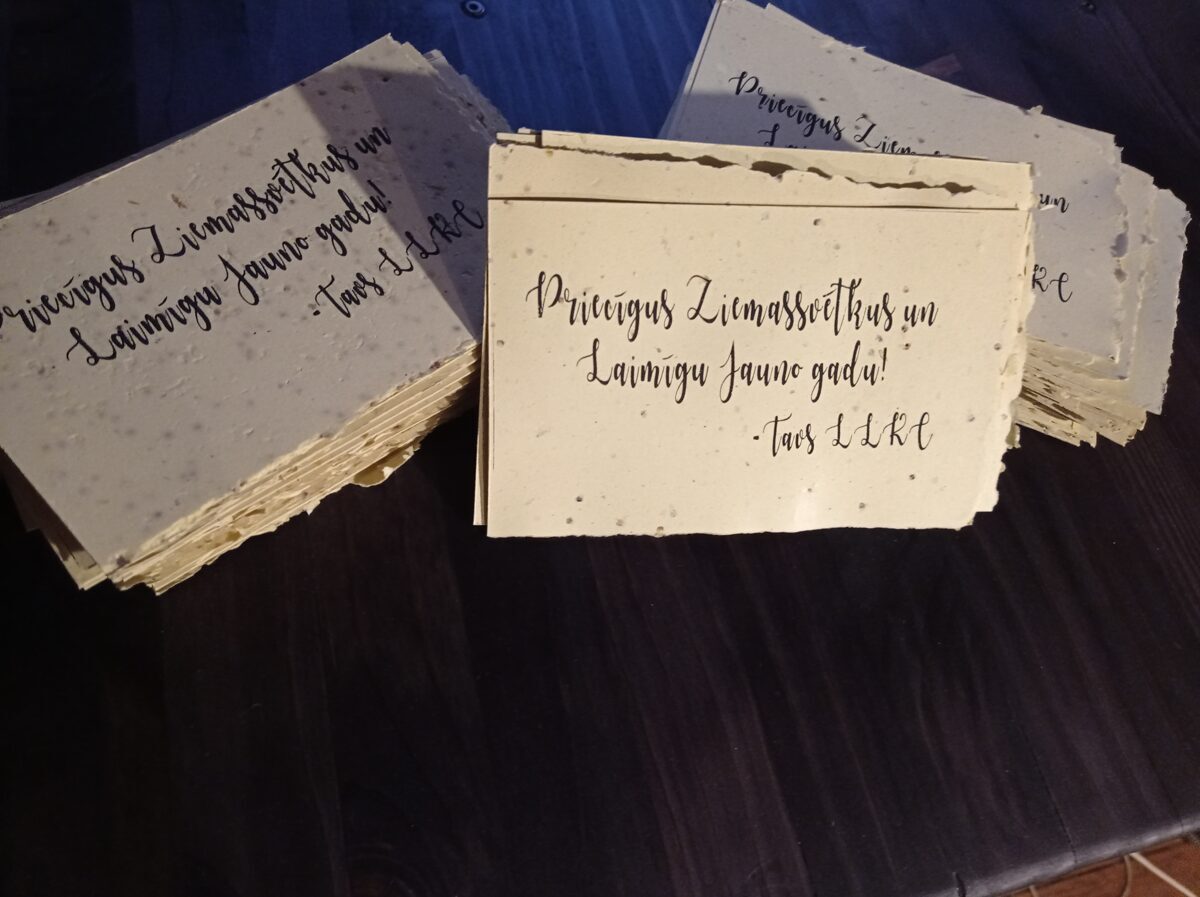 Priecīgus Ziemassvētkus un
Laimīgu Jauno gadu!
-Tavs LLKC
Priecīgus Ziemassvētkus un
Laimīgu Jauno gadu!
-Tavs LLKC
Priecīgus Ziem
un
KC